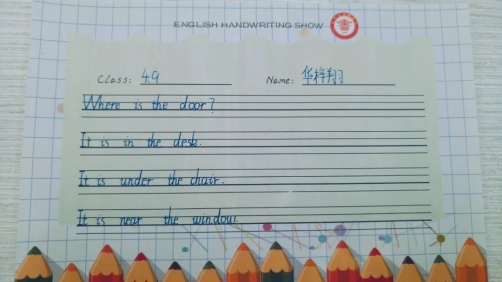 ENGLISH HANDWRITING SHOW
Class: 4.9 Name: 华梓翔
Where is the door?
It is in the desk.
It is under the chair.
It is near the window.